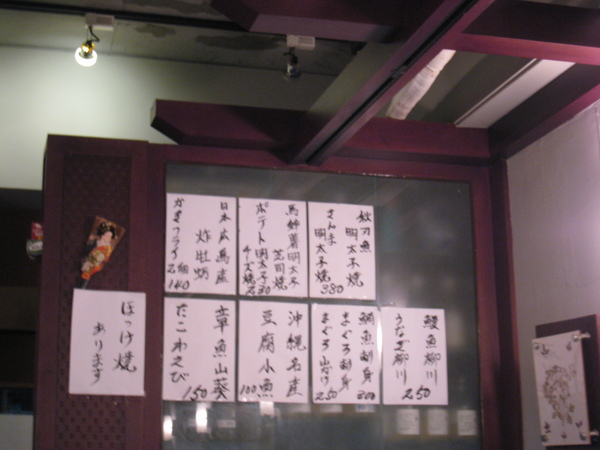 日本広島産
炸牡蛎
かきフライ
2個
140
馬鈴薯明太子
芝司焼
ポテト明太子
チーズ焼
230
秋刀魚
明太子焼
さんま
明太子焼
380
ほっけ焼
あります
章魚山葵
たこわさび
150
沖縄名産
豆腐小魚
100
鯛魚刺身
まぐろ刺身
300
まぐろ山かけ
250
鰻魚柳川
うなぎ柳川
250